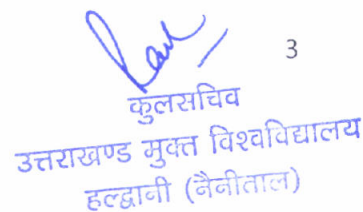 3
कुलसचिव
उत्तराखण्ड मुक्त विश्वविद्यालय
हल्द्वानी (नैनीताल)